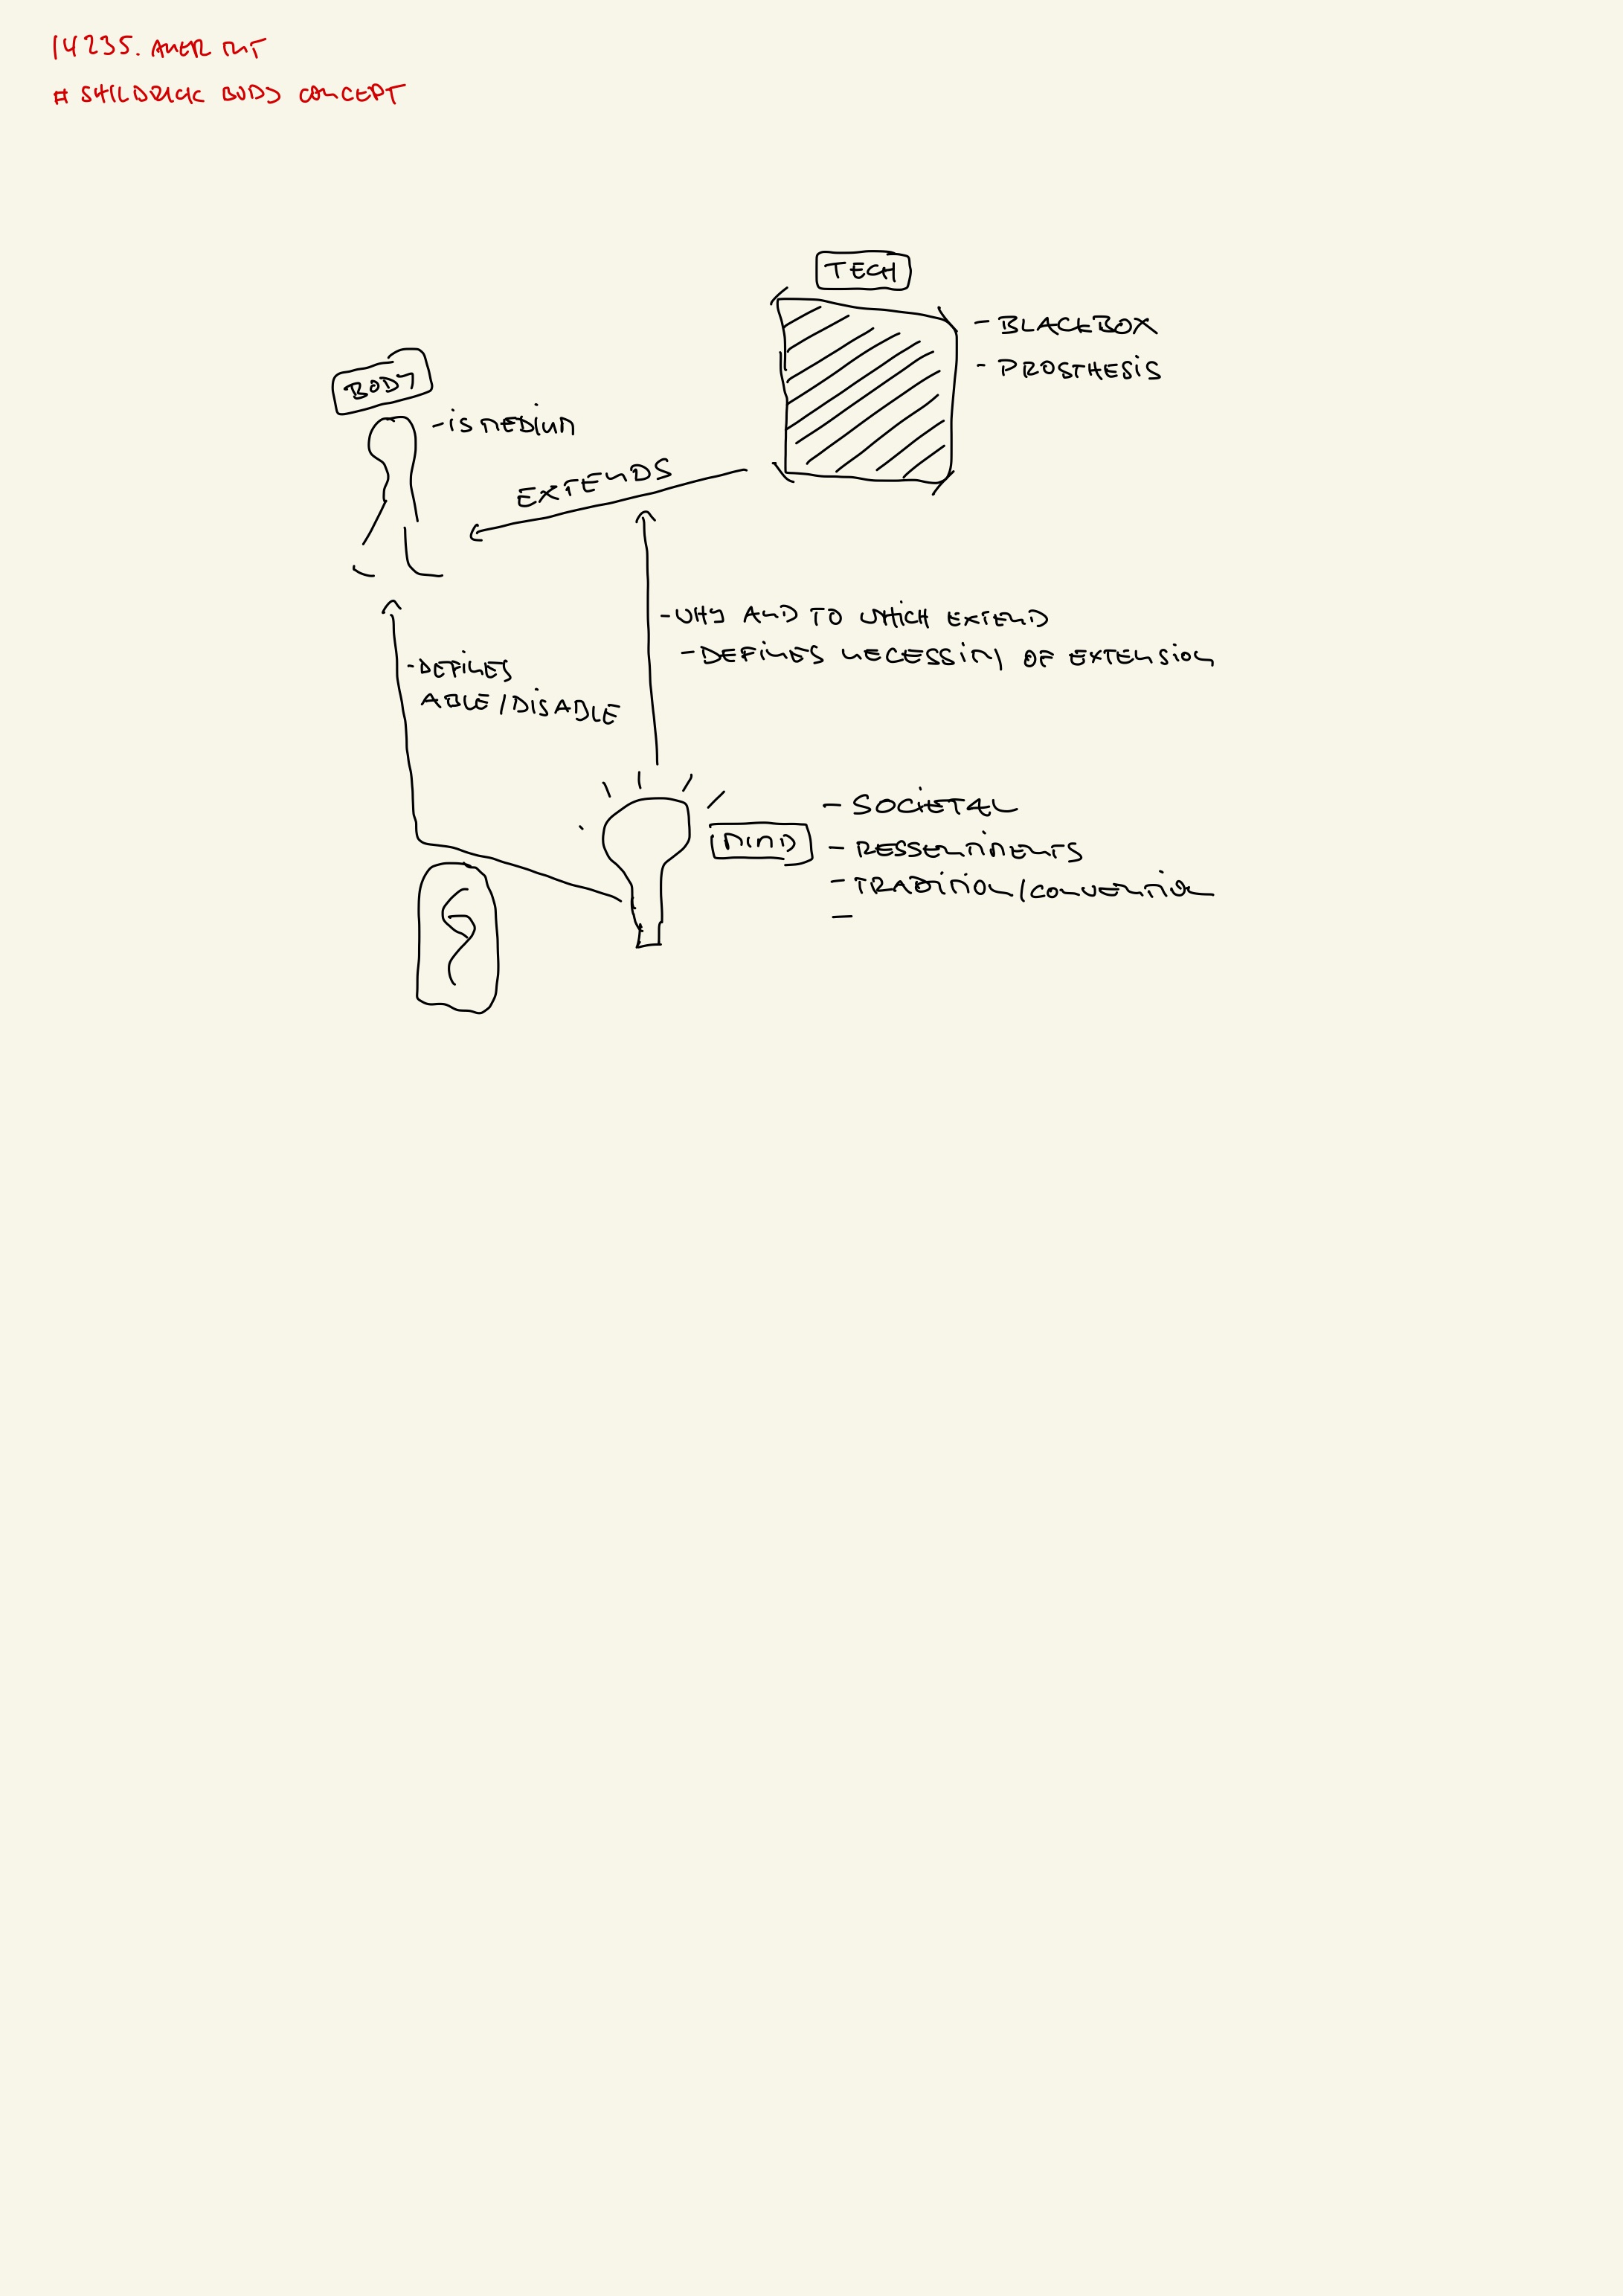 14235. AMER MT
# SHILDRICK BODY CONCEPT
TECH
- BLACKBOX
- PROSTHESIS
BODY
- IS MEDIUM
EXTENDS
- WHY AND TO WHICH EXTEND
- DEFINES NECESSITY OF EXTENSION
- DEFINES
ABLE/DISABLE
MIND
- SOCIETAL
- RESSENTIMENTS
- TRADITION/CONVENTION
-
§